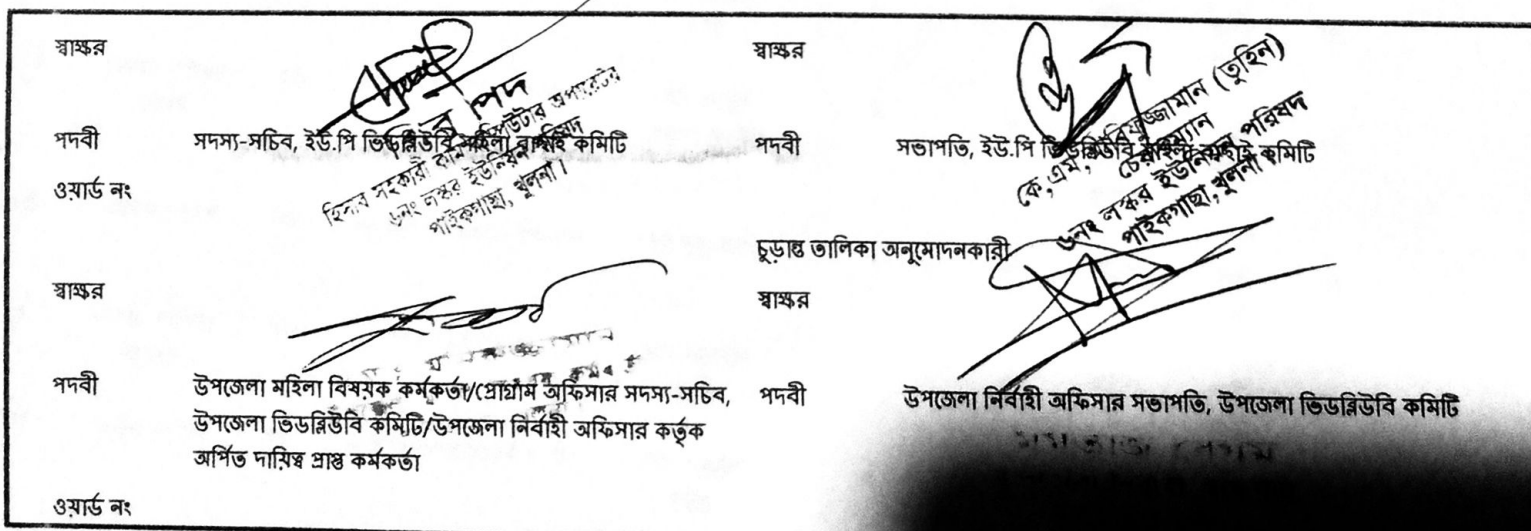 স্বাক্ষর
পদ
পদবী সদস্য-সচিব, ইউ.পি ভিডব্লিউবি মহিলা বাছাই কমিটি
হিসাব সহকারী কাম কম্পিউটার অপারেটর
৬নং লস্কর ইউনিয়ন পরিষদ
পাইকগাছা, খুলনা।
ওয়ার্ড নং
স্বাক্ষর
পদবী সভাপতি, ইউ.পি ভিডব্লিউবি মহিলা বাছাই কমিটি
কে,এম, আরিফুজ্জামান (তুহিন)
চেয়ারম্যান
৬নং লস্কর ইউনিয়ন পরিষদ
পাইকগাছা,খুলনা।
চুড়ান্ত তালিকা অনুমোদনকারী
স্বাক্ষর
পদবী উপজেলা মহিলা বিষয়ক কর্মকর্তা/প্রোগ্রাম অফিসার সদস্য-সচিব,
উপজেলা ভিডব্লিউবি কমিটি/উপজেলা নির্বাহী অফিসার কর্তৃক
অর্পিত দায়িত্ব প্রাপ্ত কর্মকর্তা
ওয়ার্ড নং
স্বাক্ষর
পদবী উপজেলা নির্বাহী অফিসার সভাপতি, উপজেলা ভিডব্লিউবি কমিটি